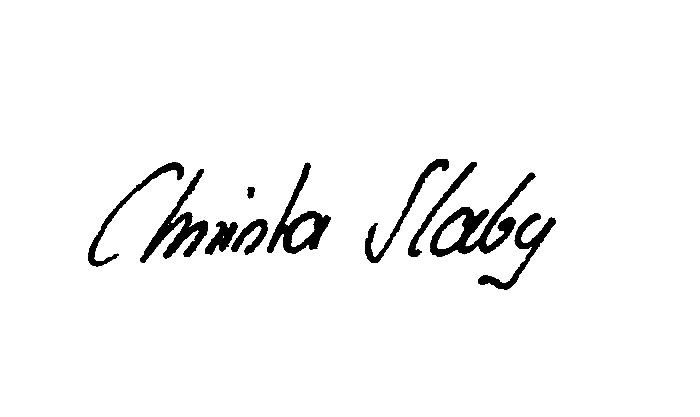 Christa Slaby